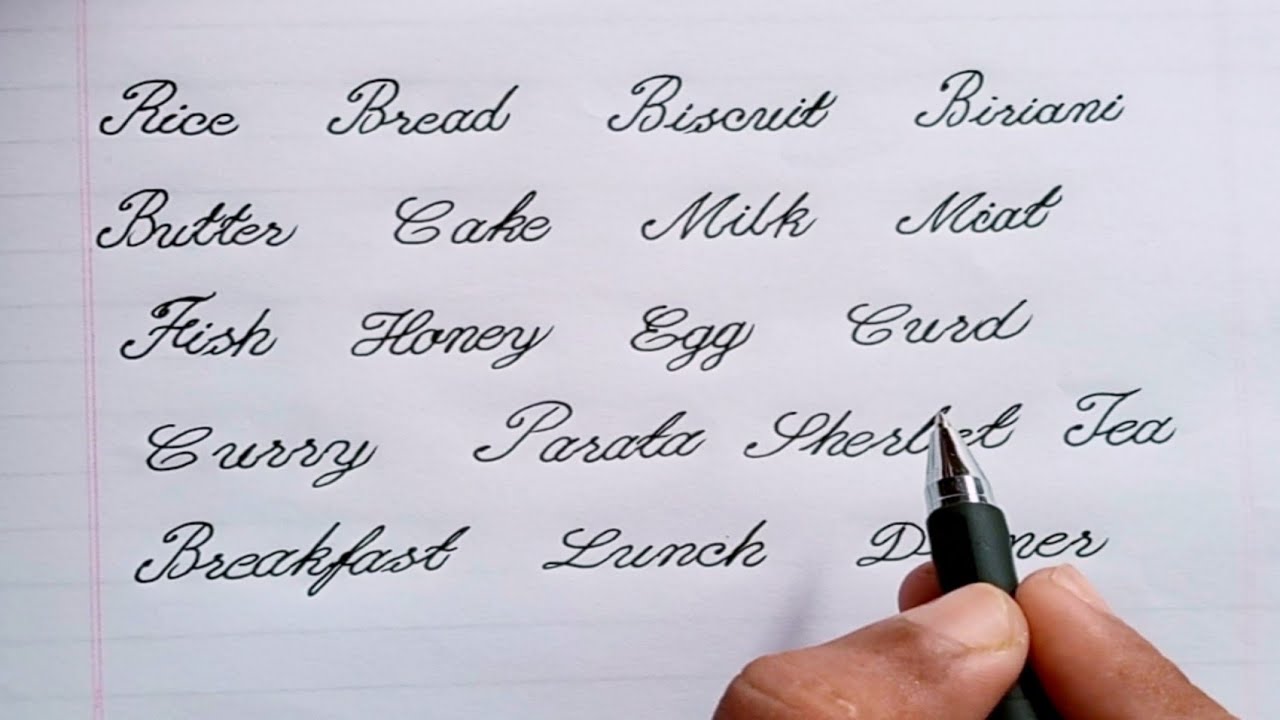 Rice Bread Biscuit Biriani
Butter Cake Milk Meat
Fish Honey Egg Curd
Curry Parata Sherbet Tea
Breakfast Lunch Dinner